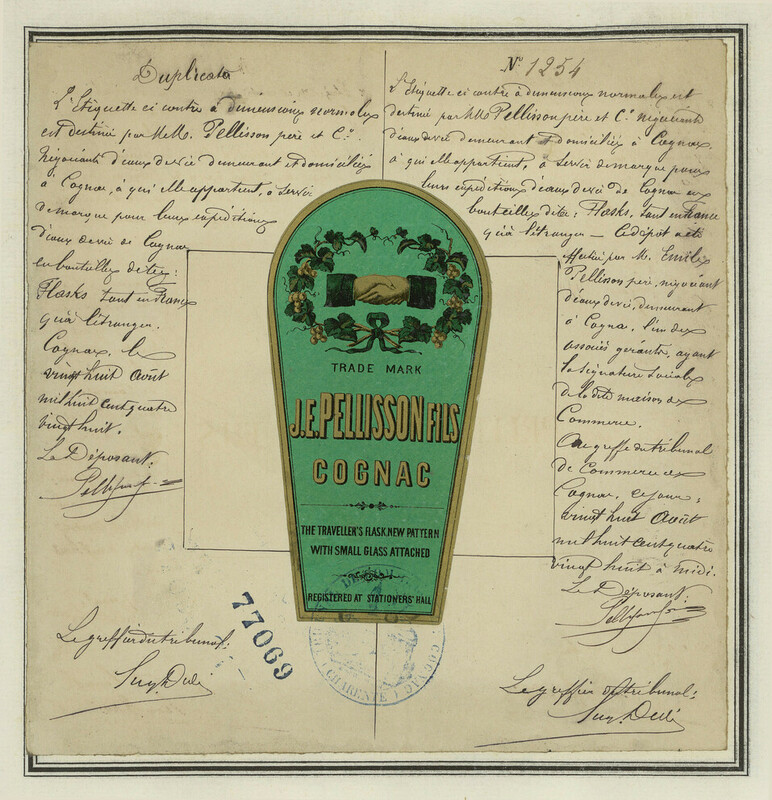 Duplicata
L'Etiquette ci contre à dimensions normales
est destinée par M.M. Pellisson père et Cie
Négociants d'eaux de vie demeurant et domiciliés
à Cognac, à qui elle appartient, à servir
de marque pour leurs expéditions
d'eaux de vie de Cognac
en bouteilles dites:
Flasks tant en France
qu'à l'étranger.
Cognac, le
vingt huit Août
mil huit cent quatre
vingt huit.
Le Déposant:
Le greffier du tribunal:
No 1254
L'Etiquette ci contre à dimensions normales est
destinée par M.M. Pellisson père et Cie négociants
d'eaux de vie demeurant et domiciliés à Cognac,
à qui elle appartient, à servir de marque pour
leurs expéditions d'eaux de vie de Cognac en
bouteilles dites: Flasks, tant en France
qu'à l'étranger — Ce dépôt a été
effectué par M. Emile
Pellisson père, négociant
d'eaux de vie, demeurant
à Cognac, l'un des
associés gérants, ayant
la signature sociale
de la dite maison de
Commerce.
Au greffe du tribunal
de Commerce de
Cognac, ce jour,
vingt huit Août
mil huit cent quatre
vingt huit à midi.
Le Déposant:
Le greffier du tribunal:
TRADE MARK
J.E. PELLISSON FILS
COGNAC
THE TRAVELLER'S FLASK, NEW PATTERN
WITH SMALL GLASS ATTACHED
REGISTERED AT STATIONERS' HALL
77069
CHARENTE